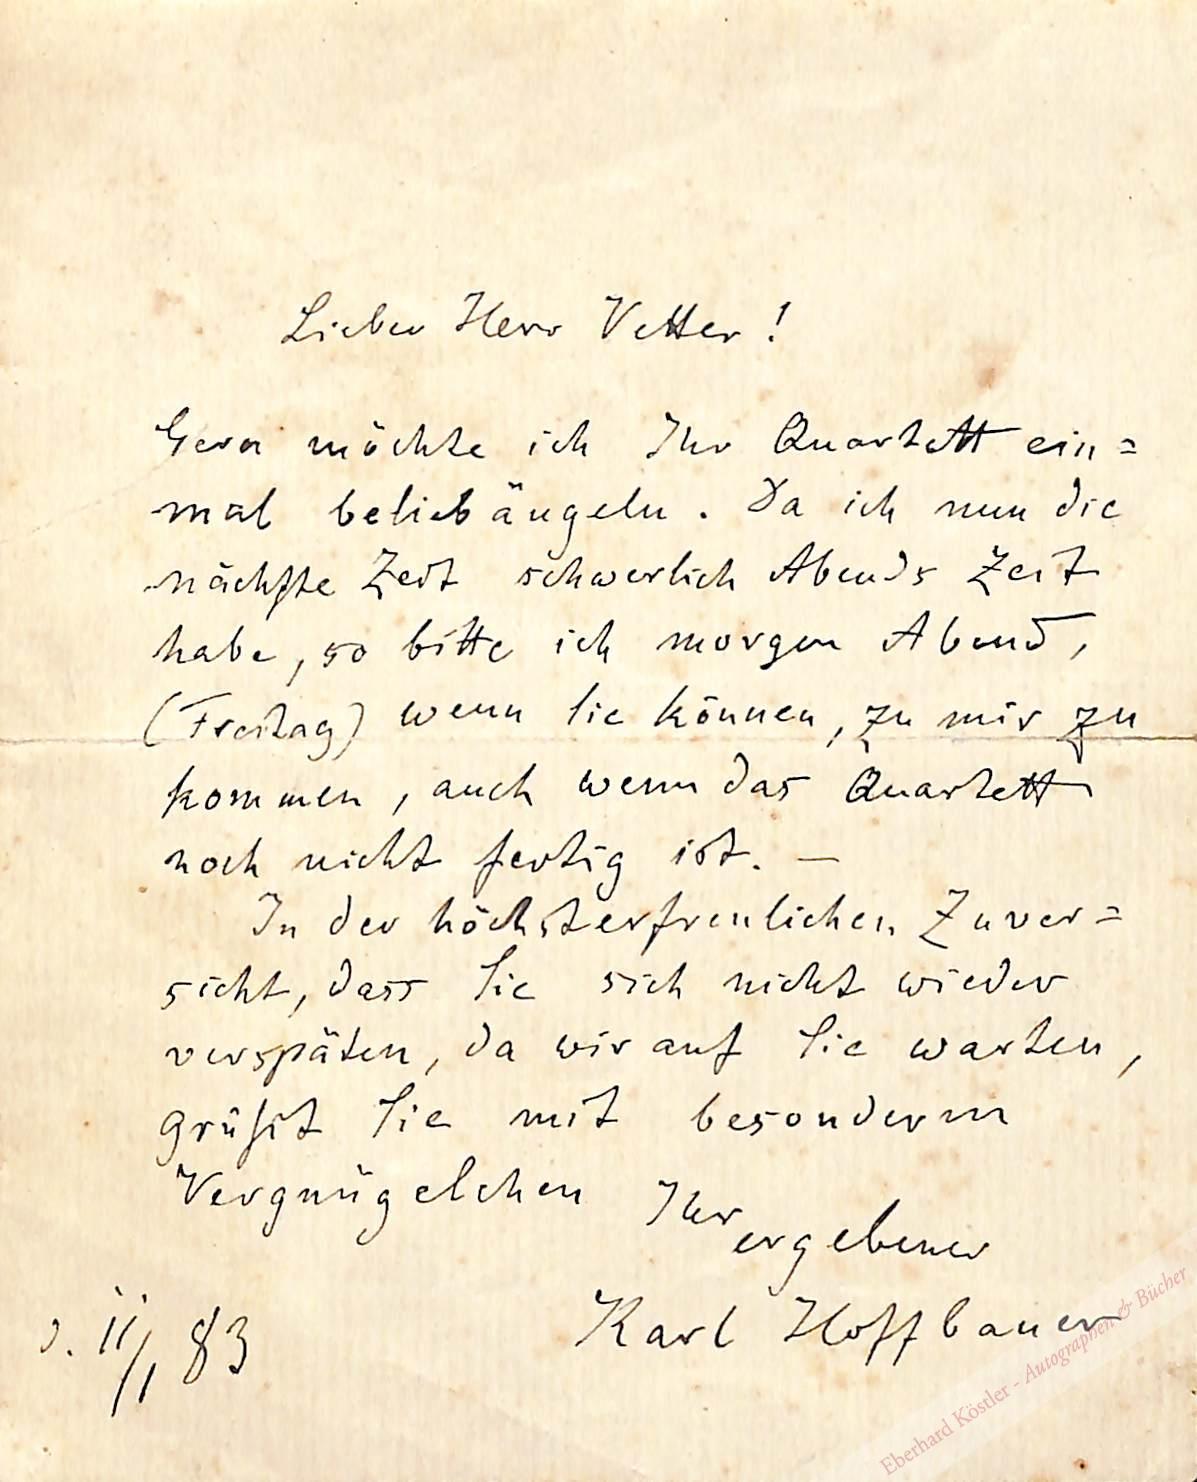 Lieber Herr Vetter!
Gern möchte ich Ihr Quartett ein=
mal beliebäugeln. Da ich nun die
nächste Zeit schwerlich Abends Zeit
habe, so bitte ich morgen Abend,
(Freitag) wenn Sie können, zu mir zu
kommen, auch wenn das Quartett
noch nicht fertig ist. —
In der höchsterfreulichen Zuver=
sicht, dass Sie sich nicht wieder
verspäten, da wir auf Sie warten,
grüßt Sie mit besonderm
Vergnügelchen Ihr
ergebener
Karl Hoffbauer
d. 11/1 83
Eberhard Köstler - Autographen & Bücher